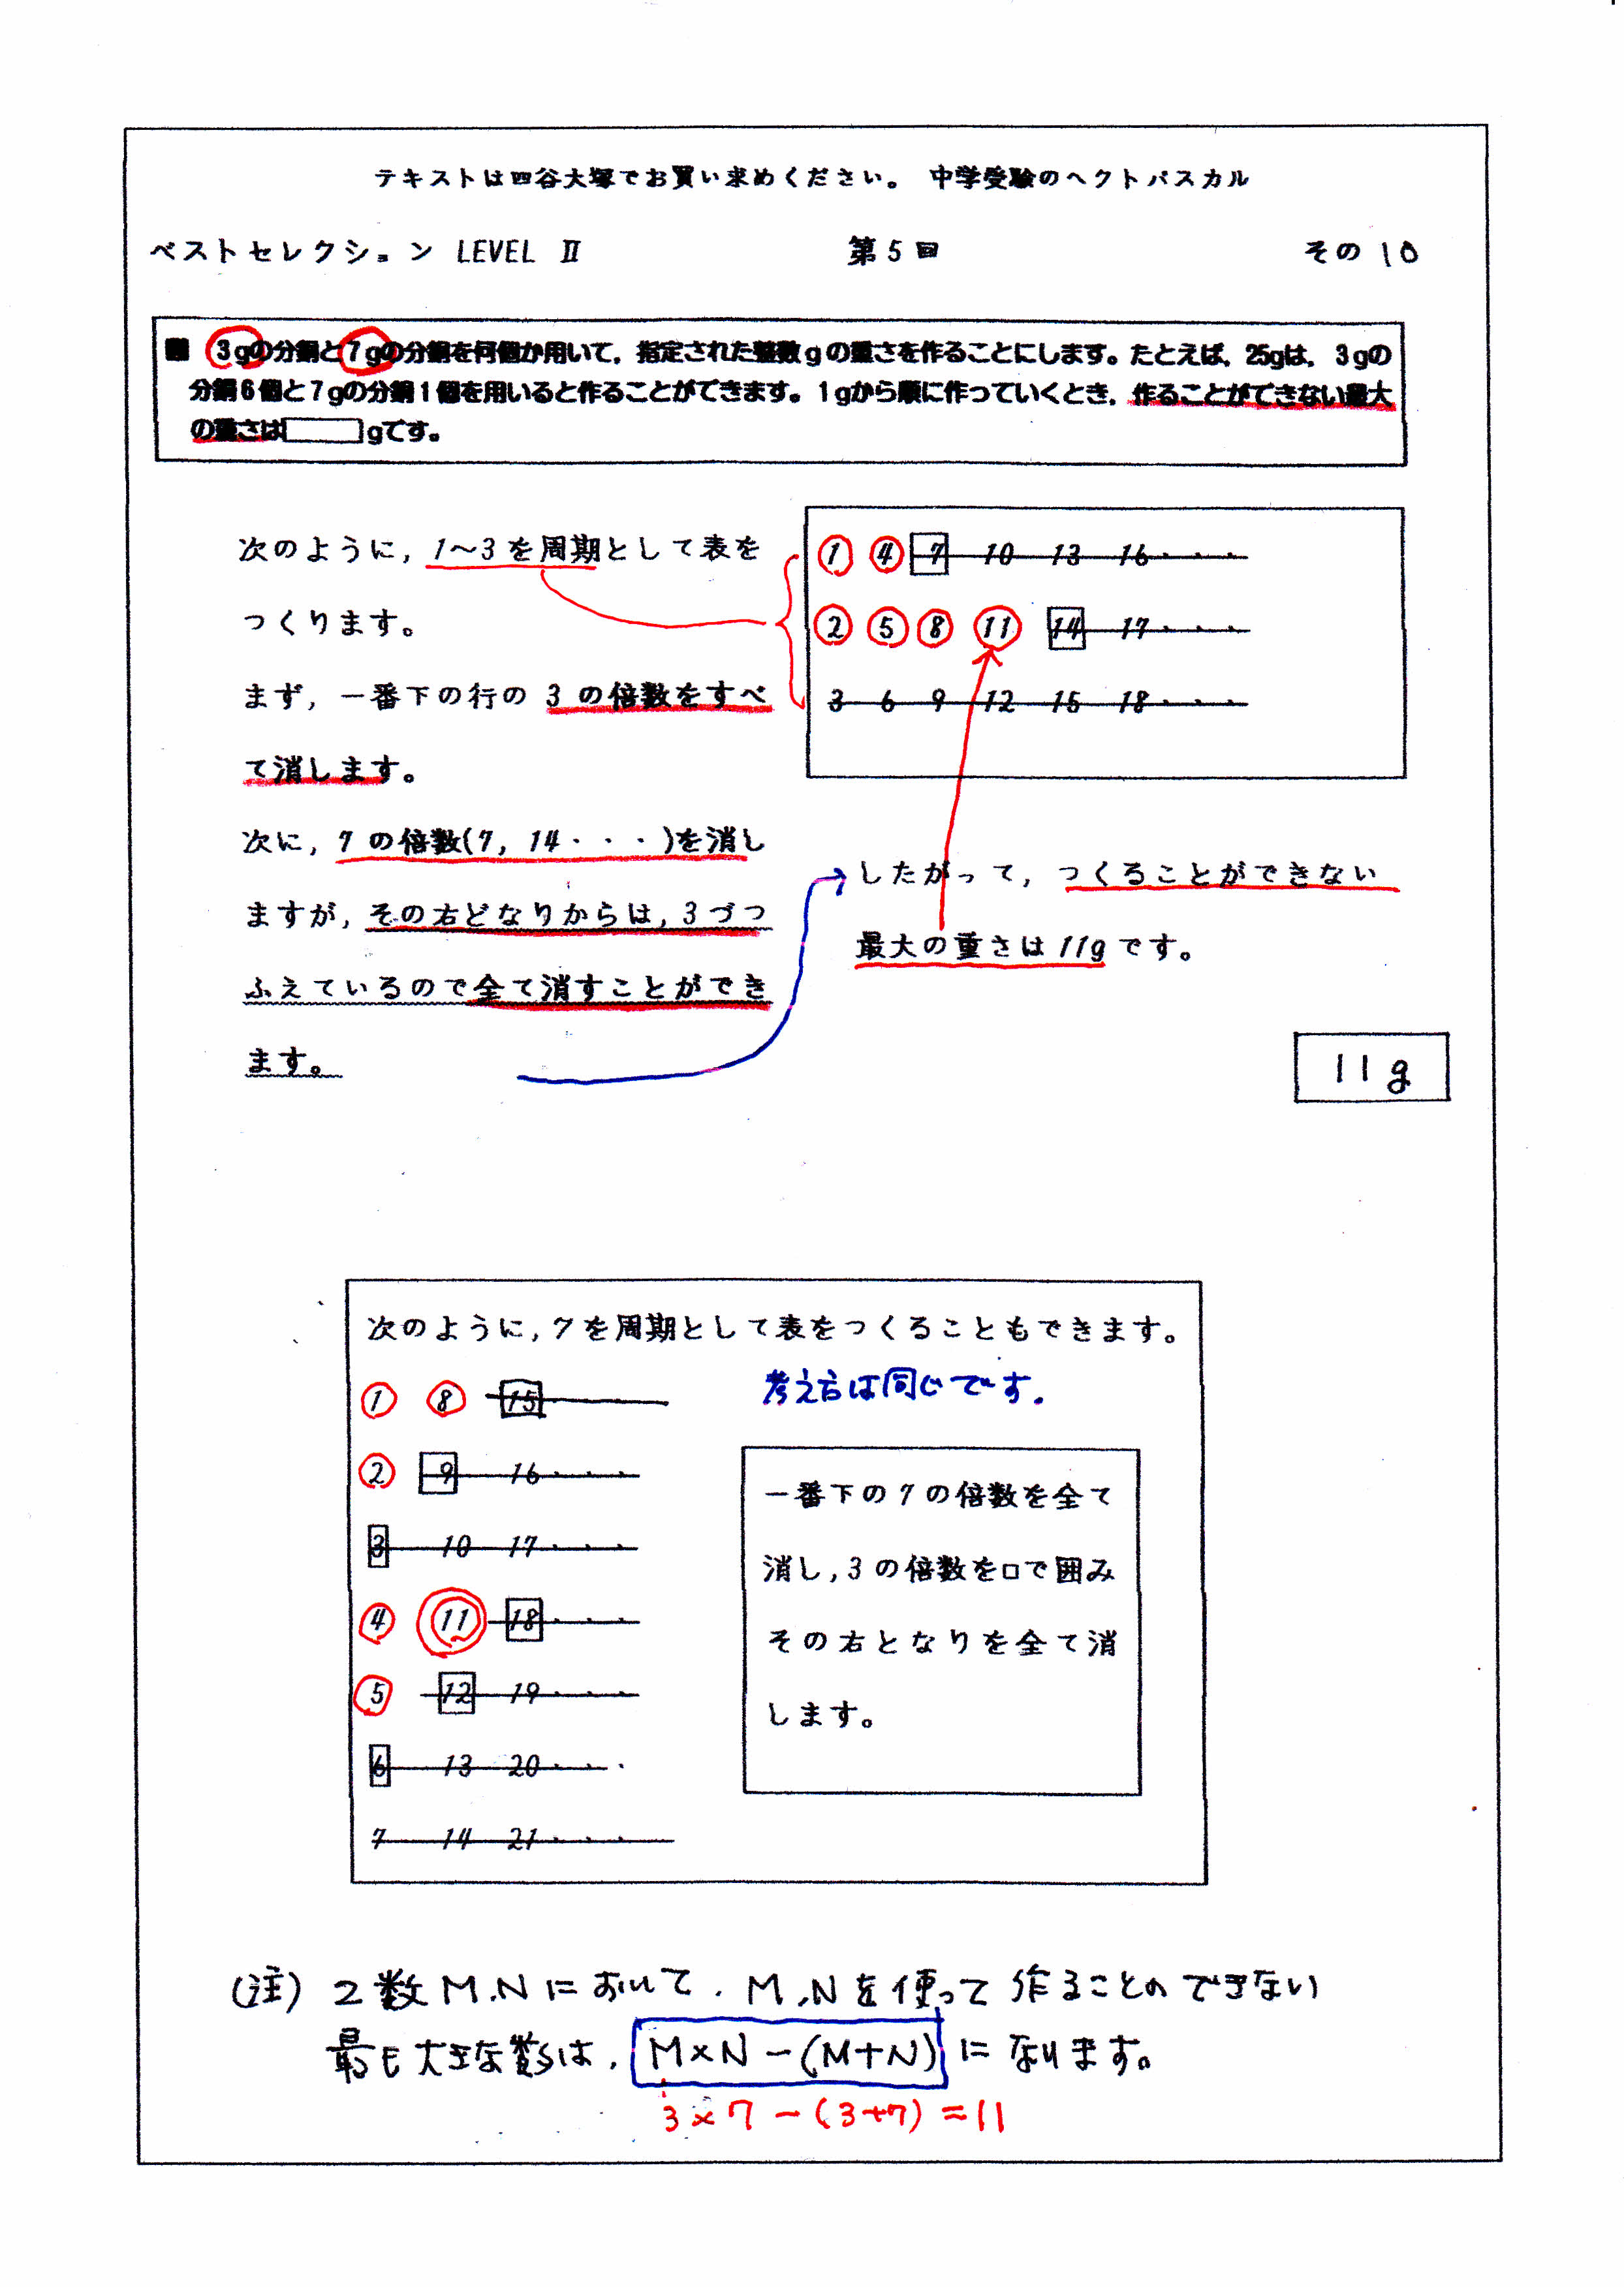 テキストは四谷大塚でお買い求めください。 中学受験のヘクトパスカル
ベストセレクション LEVEL Ⅱ 第5回 その10
3gの分銅と7gの分銅を何個か用いて，指定された整数gの重さを作ることにします。たとえば，25gは，3gの
分銅6個と7gの分銅1個を用いると作ることができます。1gから順に作っていくとき，作ることができない最大
の重さは gです。
次のように，1〜3を周期として表を
つくります。
まず，一番下の行の3の倍数をすべ
て消します。
次に，7の倍数(7，14・・・)を消し
ますが，その右どなりからは，3づつ
ふえているので全て消すことができ
ます。
1 4 7 10 13 16・・・
2 5 8 11 14 17・・・
3 6 9 12 15 18・・・
したがって，つくることができない
最大の重さは11gです。
11g
次のように，7を周期として表をつくることもできます。
考え方は同じです.
1 8 15
2 9 16・・・
3 10 17・・・
4 11 18・・・
5 12 19・・・
6 13 20・・・
7 14 21・・・
一番下の7の倍数を全て
消し，3の倍数を□で囲み
その右となりを全て消
します。
(注) 2数M,Nにおいて. M,Nを使って作ることのできない
最も大きな数は, M×N−(M+N)になります。
3×7−(3+7)=11